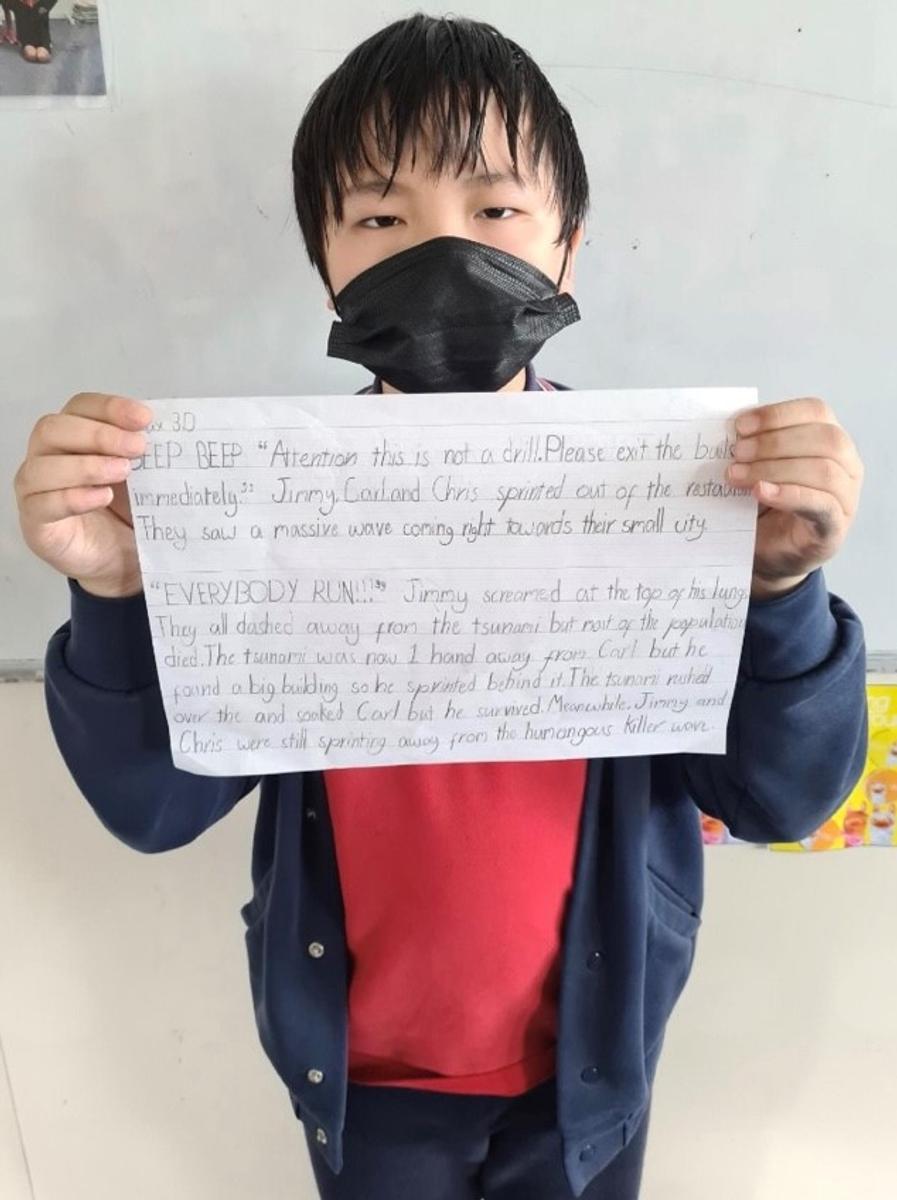 3D
BEEP BEEP "Attention this is not a drill. Please exit the
immediately." Jimmy, Carl and Chris sprinted out of the
They saw a massive wave coming right towards their small city.
"EVERYBODY RUN!!!" Jimmy screamed at the top of his lungs
They all dashed away from the tsunami but most of the population
died. The tsunami was now 1 hand away from Carl but he
found a big building so he sprinted behind it. The tsunami rushed
over the and soaked Carl but he survived. Meanwhile, Jimmy and
Chris were still sprinting away from the humangous killer wave.